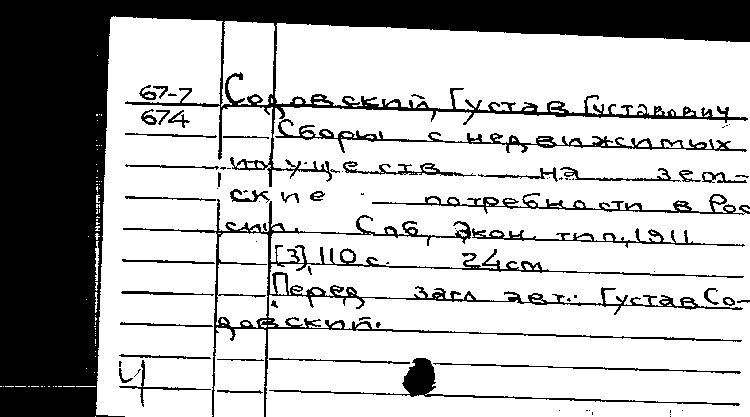 67-7
674
Содовский, Густав Густавович
Сборы с недвижимых
имуществ на зем-
ские потребности в Рос
сии. Спб, Экон. тип., 1911
[3], 110 с. 24 cm
Перед загл авт.: Густав Со-
довский.
Ч